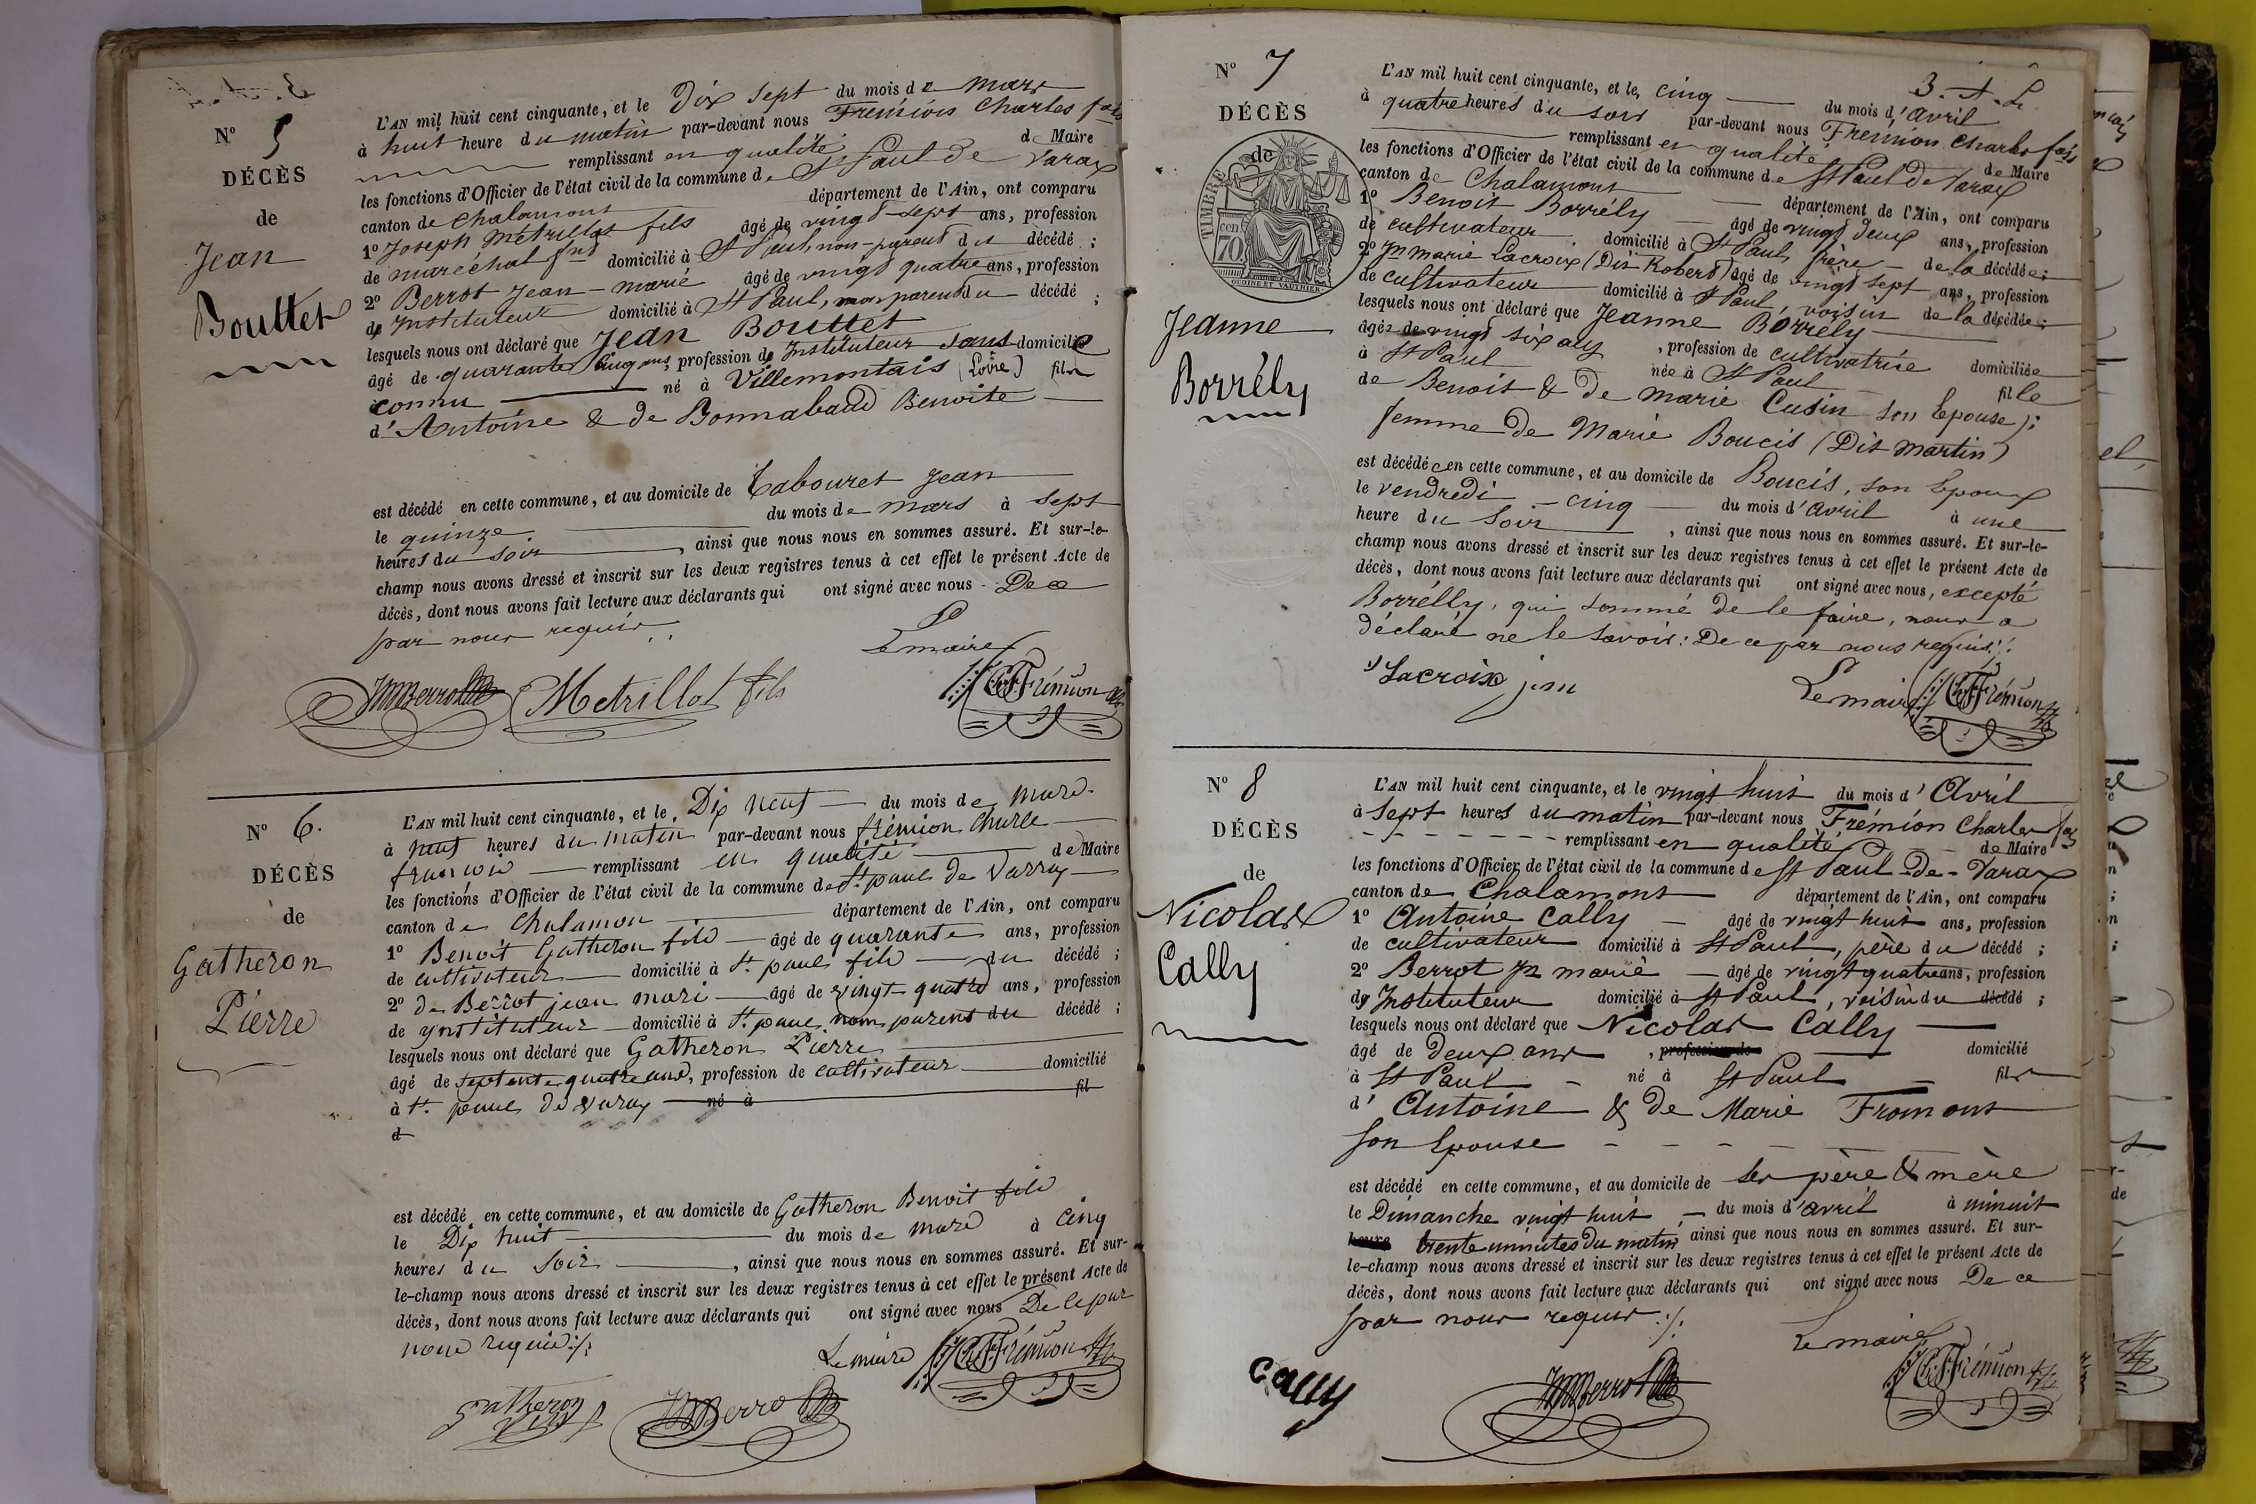 N° 5
DÉCÈS
de
Jean
Bouttet
L'AN mil huit cent cinquante, et le Dix sept du mois de mars
à huit heure du matin par-devant nous Frémion Charles fois
remplissant en qualité de Maire
les fonctions d'Officier de l'état civil de la commune de St Paul de Varax
canton de Chalamont département de l'Ain, ont comparu
1° Joseph Métrillot fils âgé de vingt-sept ans, profession
de maréchal fnd domicilié à St Paul, non-parent du décédé ;
2° Berrot Jean-marie âgé de vingt quatre ans, profession
de Instituteur domicilié à St Paul, non parent du décédé ;
lesquels nous ont déclaré que Jean Bouttet
âgé de quarante cinq ans, profession de Instituteur sans domicilie
connu né à Villemontais (Loire) fils
d'Antoine & de Bonnabaud Benoite
est décédé en cette commune, et au domicile de Tabouret Jean
le quinze du mois de mars à sept
heures du soir, ainsi que nous nous en sommes assuré. Et sur-le-
champ nous avons dressé et inscrit sur les deux registres tenus à cet effet le présent Acte de
décès, dont nous avons fait lecture aux déclarants qui ont signé avec nous De ce
par nous requis
Le maire
JMBerrot Metrillot fils Ch Frémion
N° 6.
DÉCÈS
de
Gatheron
Pierre
L'AN mil huit cent cinquante, et le Dix neuf du mois de mars.
à neuf heures du matin par-devant nous frémion Charle
françois remplissant en qualité de Maire
les fonctions d'Officier de l'état civil de la commune de St. paul de Varray
canton de Chalamon département de l'Ain, ont comparu
1° Benoit Gatheron fils âgé de quarante ans, profession
de cultivateur domicilié à St. paul fils du décédé ;
2° de Berrot jean mari âgé de vingt quatre ans, profession
de ynstituteur domicilié à St. paul, non parent du décédé ;
lesquels nous ont déclaré que Gatheron Pierre
âgé de septente quatre ans, profession de cultivateur domicilié
à St. paul de varax né à fil
d
est décédé en cette commune, et au domicile de Gatheron Benoit fils
le Dix huit du mois de mars à cinq
heures du soir, ainsi que nous nous en sommes assuré. Et sur-
le-champ nous avons dressé et inscrit sur les deux registres tenus à cet effet le présent Acte de
décès, dont nous avons fait lecture aux déclarants qui ont signé avec nous De ce par
nous requis :/:
Le maire Ch Frémion
gatheron JMBerrot
N° 7
DÉCÈS
de
TIMBRE
70
OUDINÉ ET VAUTHIER
Jeanne
Borrély
L'AN mil huit cent cinquante, et le cinq du mois d'avril
à quatre heures du soir par-devant nous Frémion Charles fois
remplissant en qualité de Maire
les fonctions d'Officier de l'état civil de la commune de St Paul de Varax
canton de Chalamont département de l'Ain, ont comparu
1° Benoit Borrély âgé de vingt deux ans, profession
de cultivateur domicilié à St Paul, frère de la décédée ;
2° Jn marie Lacroix (Dit Robert) âgé de vingt sept ans, profession
de cultivateur domicilié à St Paul, voisin de la décédée ;
lesquels nous ont déclaré que Jeanne Borrély
âgée de vingt six ans, profession de cultivatrice domiciliée
à St Paul née à St Paul fille
de Benoit & de marie Cusin son Epouse ;
femme de Marie Boucis (Dit martin)
est décédée en cette commune, et au domicile de Boucis, son Epoux
le vendredi cinq du mois d'avril à une
heure du soir, ainsi que nous nous en sommes assuré. Et sur-le-
champ nous avons dressé et inscrit sur les deux registres tenus à cet effet le présent Acte de
décès, dont nous avons fait lecture aux déclarants qui ont signé avec nous, excepté
Borrélly, qui sommé de le faire, nous a
déclaré ne le savoir : De ce par nous requis
Lacroix jm Le maire Ch Frémion
N° 8
DÉCÈS
de
Nicolas
Cally
L'AN mil huit cent cinquante, et le vingt huit du mois d'Avril
à sept heures du matin par-devant nous Frémion Charles fois
remplissant en qualité de Maire
les fonctions d'Officier de l'état civil de la commune de St Paul-de-Varax
canton de Chalamont département de l'Ain, ont comparu
1° Antoine Cally âgé de vingt huit ans, profession
de cultivateur domicilié à St Paul, père du décédé ;
2° Berrot Jn marie âgé de vingt quatre ans, profession
de Instituteur domicilié à St Paul, voisin du décédé ;
lesquels nous ont déclaré que Nicolas Cally
âgé de deux ans, profession de domicilié
à St Paul né à St Paul fils
d'Antoine & de Marie Fromont
son Epouse
est décédé en cette commune, et au domicile de ses père & mère
le Dimanche vingt huit du mois d'avril à minuit
heure trente minutes du matin ainsi que nous nous en sommes assuré. Et sur-
le-champ nous avons dressé et inscrit sur les deux registres tenus à cet effet le présent Acte de
décès, dont nous avons fait lecture aux déclarants qui ont signé avec nous De ce
par nous requis :/:
Le maire
Cally JMBerrot Ch Frémion